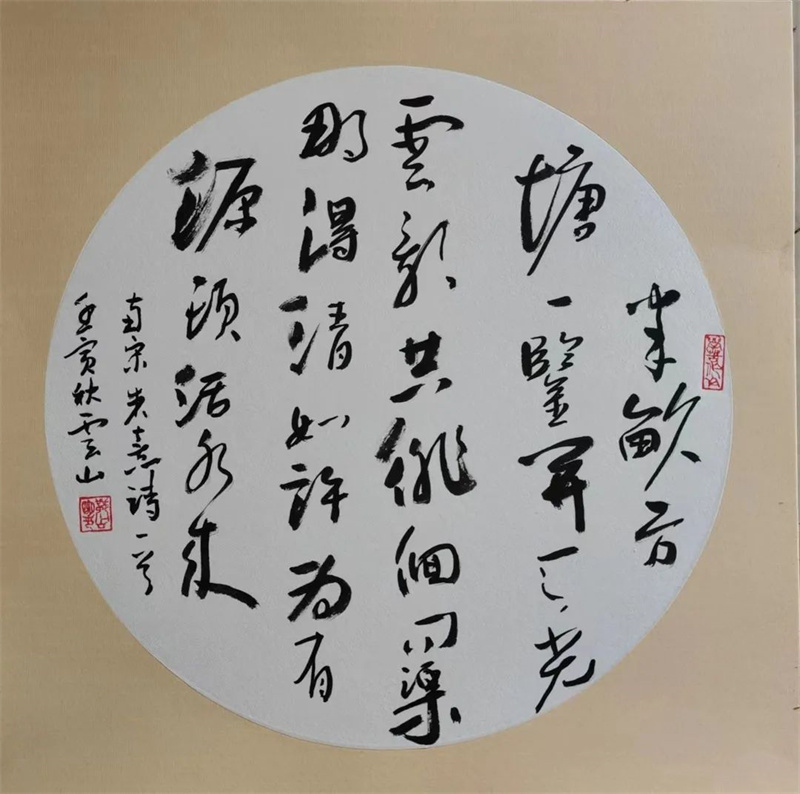 半畝方
塘一鑒開天光
雲影共徘徊問渠
那得清如許為有
源頭活水來
南宋朱熹詩一首
壬寅秋雲山